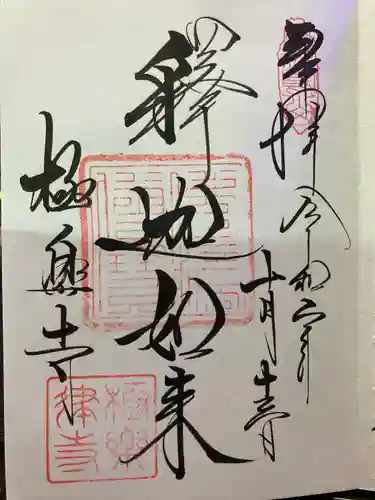 奉拝 令和六年
十月十三日
釋迦如来
極楽寺
極樂律寺